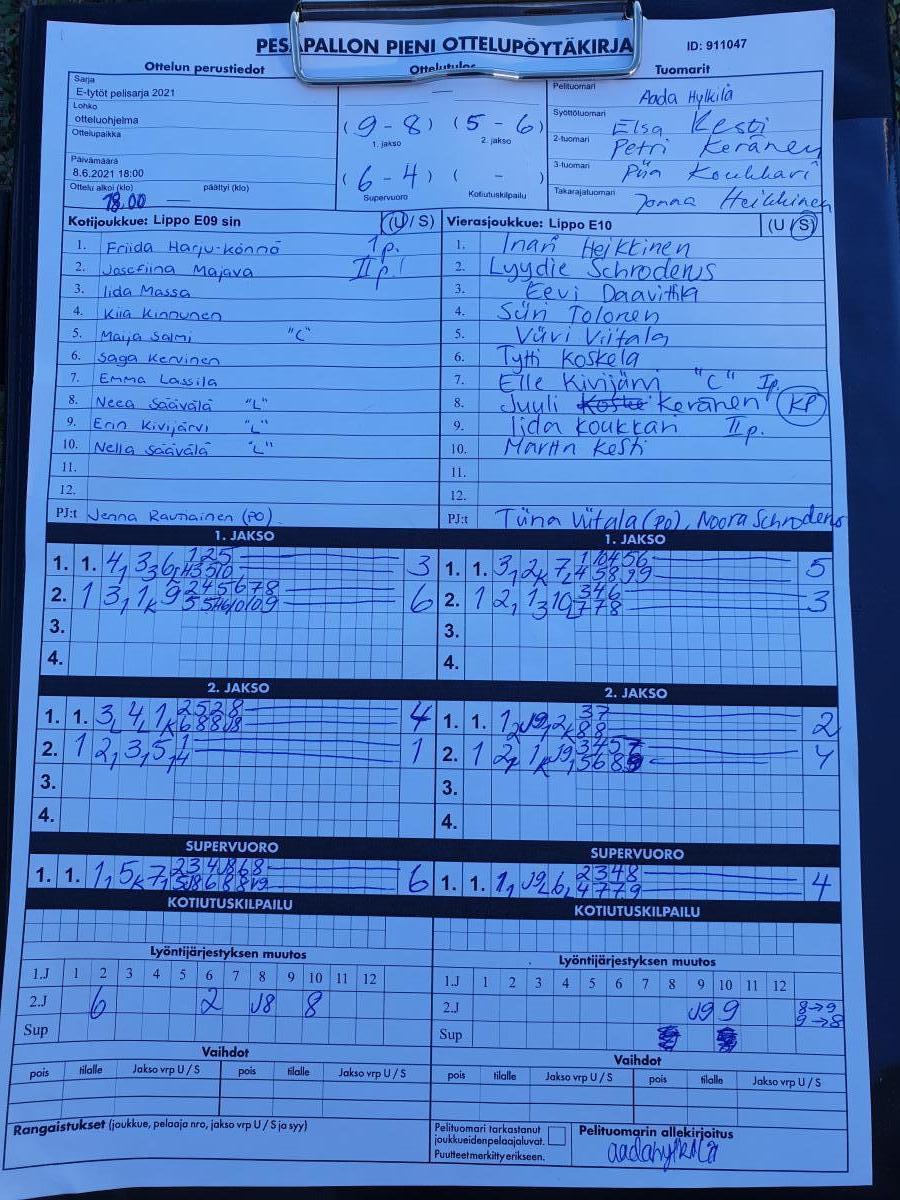 PESÄPALLON PIENI OTTELUPÖYTÄKIRJA
ID: 911047
Ottelun perustiedot
Sarja
E-tytöt pelisarja 2021
Lohko
otteluohjelma
Ottelupaikka
Päivämäärä
8.6.2021 18:00
Ottelu alkoi (klo) päättyi (klo)
18.00 —
Ottelutulos
—
(9-8) (5-6)
1. jakso 2. jakso
(6-4) ( - )
Supervuoro Kotiutuskilpailu
Tuomarit
Pelituomari Aada Hylkilä
Syöttötuomari Elsa Kesti
2-tuomari Petri Keränen
3-tuomari Piia Koukkari
Takarajatuomari Jonna Heikkinen
Kotijoukkue: Lippo E09 sin (U/S)
1. Friida Harju-Könnö 1p.
2. Josefiina Majava IIp!
3. Iida Massa
4. Kiia Kinnunen
5. Maija Salmi "C"
6. Saga Kervinen
7. Emma Lassila
8. Neea Säävälä "L"
9. Erin Kivijärvi "L"
10. Nella Säävälä "L"
11.
12.
PJ:t Jenna Rautiainen (PO)
Vierasjoukkue: Lippo E10 (U/S)
1. Inari Heikkinen
2. Lyydie Schroderus
3. Eevi Daavittila
4. Siiri Tolonen
5. Viivi Viitala
6. Tytti Koskela
7. Elle Kivijärvi "C" Ip.
8. Juuli Keränen KP
9. Iida Koukkari IIp.
10. Martta Kesti
11.
12.
PJ:t Tiina Viitala (PO), Noora Schroderus
1. JAKSO
1. 1. 3
2. 1 6
3.
4.
1. JAKSO
1. 1. 5
2. 1 3
3.
4.
2. JAKSO
1. 1. 4
2. 1 1
3.
4.
2. JAKSO
1. 1. 2
2. 1 4
3.
4.
SUPERVUORO
1. 1. 6
SUPERVUORO
1. 1. 4
KOTIUTUSKILPAILU
KOTIUTUSKILPAILU
Lyöntijärjestyksen muutos
1.J 1 2 3 4 5 6 7 8 9 10 11 12
2.J 6 2 J8 8
Sup
Lyöntijärjestyksen muutos
1.J 1 2 3 4 5 6 7 8 9 10 11 12
2.J J9 9 8→9
9→8
Sup
Vaihdot
pois tilalle Jakso vrp U / S pois tilalle Jakso vrp U / S
Vaihdot
pois tilalle Jakso vrp U / S pois tilalle Jakso vrp U / S
Rangaistukset (joukkue, pelaaja nro, jakso vrp U / S ja syy)
Pelituomari tarkastanut
joukkueidenpelaajaluvat.
Puutteet merkitty erikseen.
Pelituomarin allekirjoitus
aadahylkilä